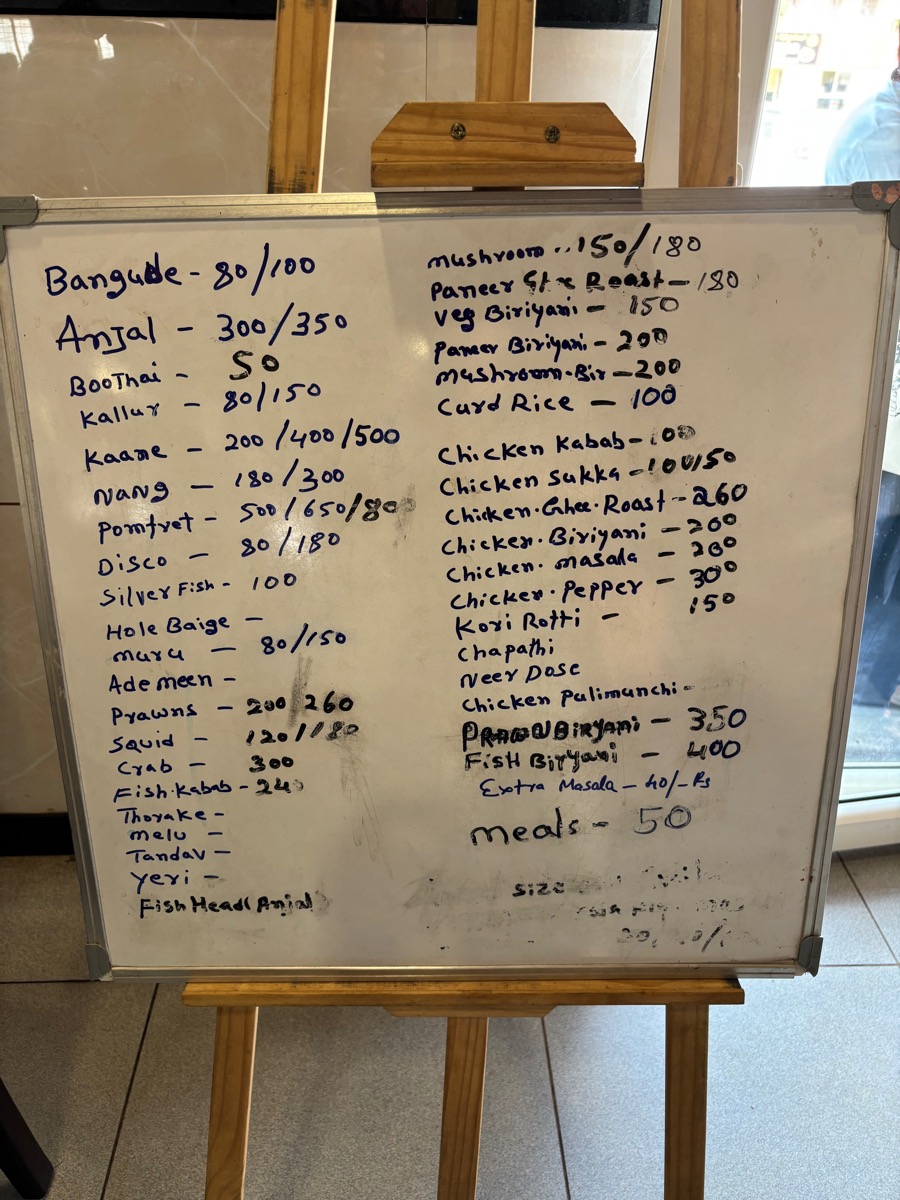 Bangude - 80/100
Anjal - 300/350
BooThai - 50
Kallur - 80/150
Kaane - 200/400/500
Nang - 180/300
Pomfret - 500/650/800
Disco - 80/180
Silver Fish - 100
Hole Baige -
muru - 80/150
Ade meen -
Prawns - 200/260
Squid - 120/180
Crab - 300
Fish.Kabab - 240
Thorake -
melu -
Tandav -
Yeri -
Fish Head(Anjal)
mushroom .. 150/180
Paneer Roast - 180
Veg Biriyani - 150
Paneer Biriyani - 200
Mushroom.Bir - 200
Curd Rice - 100
Chicken Kabab - 100
Chicken Sukka - 100/150
Chicken.Ghee.Roast - 260
Chicken.Biriyani - 200
Chicken.masala - 200
Chicken.Pepper - 300
Kori Rotti - 150
Chapathi
Neer Dose
Chicken Pulimunchi -
PRAWN Biryani - 350
FisH Biryani - 400
Extra Masala - 40/- Rs
meals - 50
size